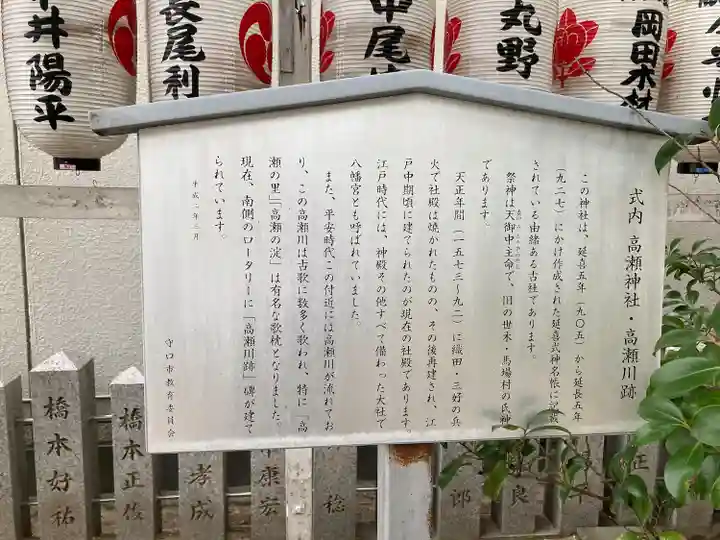 井陽平
長尾利
中尾
丸野
岡田木材
式内 高瀬神社・高瀬川跡
この神社は、延喜五年(九〇五)から延長五年
(九二七)にかけ作成された延喜式神名帳に記載
されている由緒ある古社であります。
祭神は天御中主命で、旧の世木・馬場村の氏神
であります。
天正年間(一五七三~九二)に織田・三好の兵
火で社殿は焼かれたものの、その後再建され、江
戸中期頃に建てられたのが現在の社殿であります。
江戸時代には、神殿その他すべて備わった大社で
八幡宮とも呼ばれていました。
また、平安時代この付近には高瀬川が流れてお
り、この高瀬川は古歌に数多く歌われ、特に「高
瀬の里」「高瀬の淀」は有名な歌枕となりました。
現在、南側のロータリーに「高瀬川跡」碑が建て
られています。
平成二年三月
守口市教育委員会
橋本好祐
橋本正佐
孝成
康宏
稔
郎
良
正